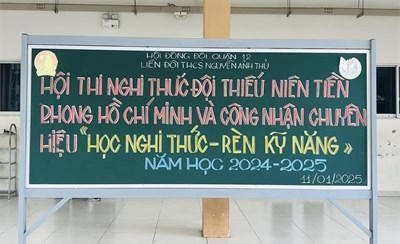 HỘI ĐỒNG ĐỘI QUẬN 12
LIÊN ĐỘI THCS NGUYỄN ANH THỦ
HỘI THI NGHI THỨC ĐỘI THIẾU NIÊN TIỀN
PHONG HỒ CHÍ MINH VÀ CÔNG NHẬN CHUYÊN
HIỆU "HỌC NGHI THỨC - RÈN KỸ NĂNG"
NĂM HỌC 2024-2025
11/01/2025